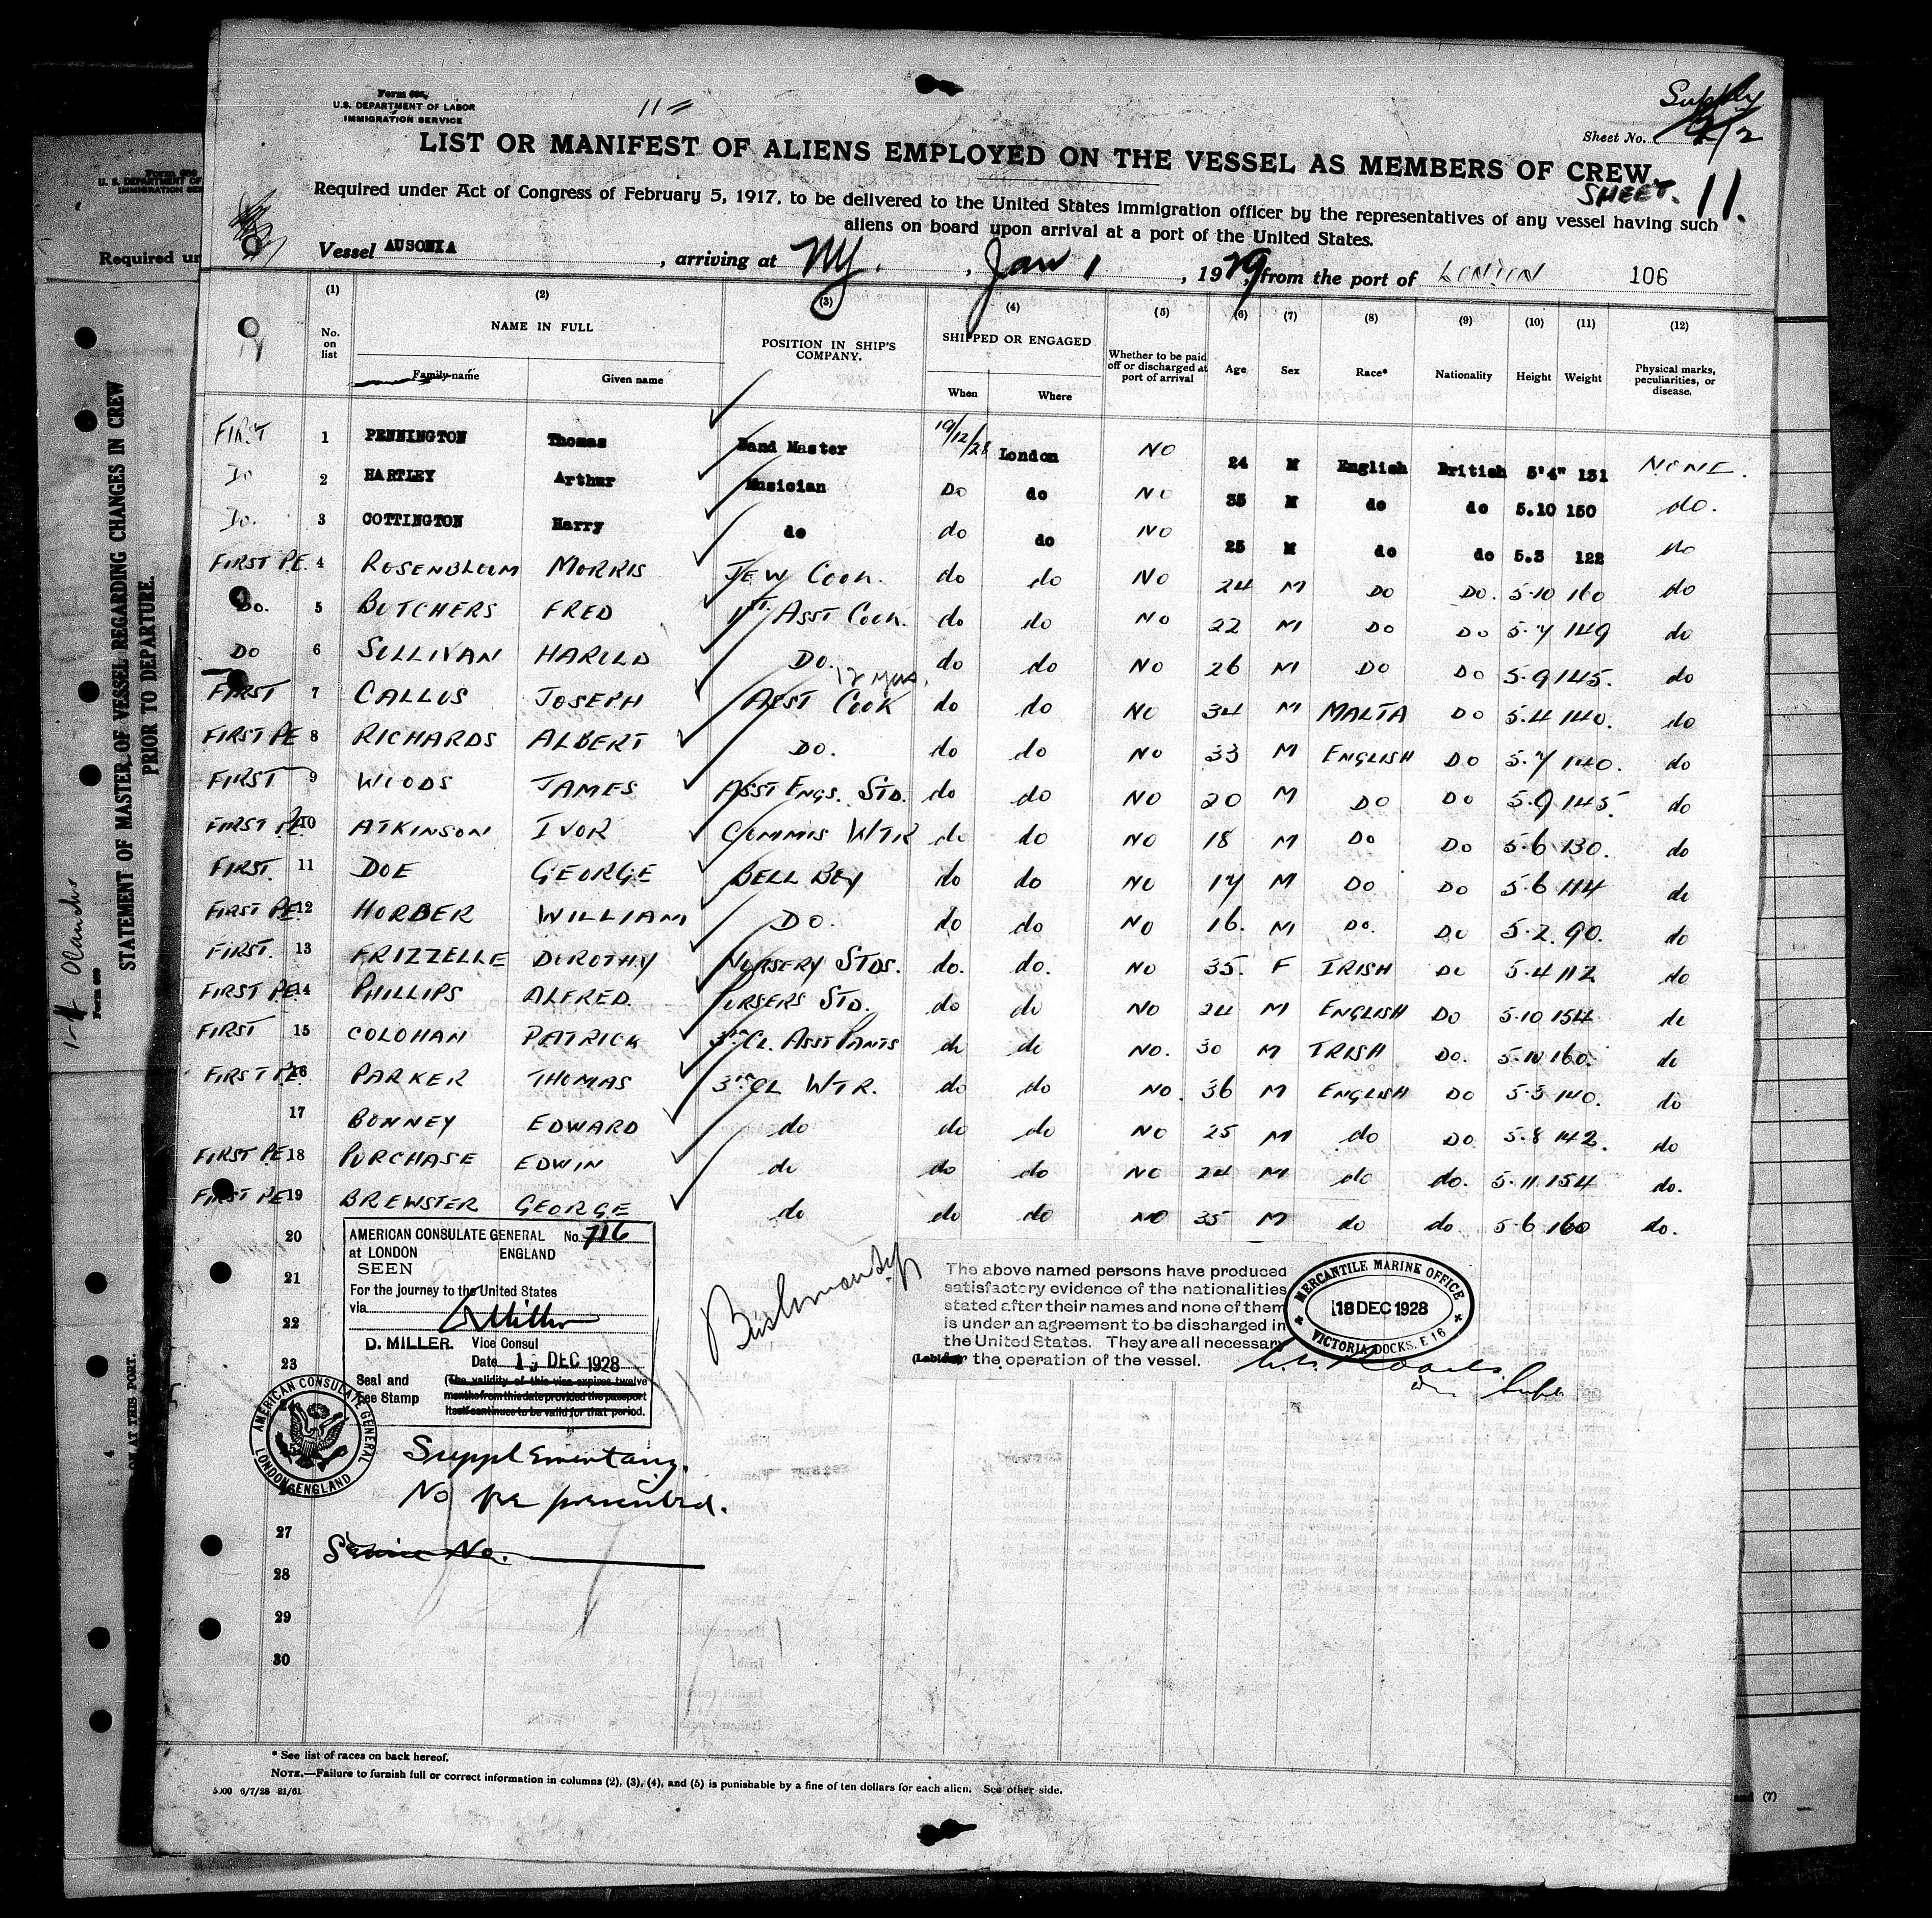 Form 686,
U.S. DEPARTMENT OF LABOR
IMMIGRATION SERVICE
11=
Supply
Sheet No. 2/2
LIST OR MANIFEST OF ALIENS EMPLOYED ON THE VESSEL AS MEMBERS OF CREW.
SHEET. 11.
Required under Act of Congress of February 5, 1917, to be delivered to the United States immigration officer by the representatives of any vessel having such
aliens on board upon arrival at a port of the United States.
Vessel AUSONIA, arriving at NY., Jan 1, 1929, from the port of LONDON 106
(1) (2) (3) (4) (5) (6) (7) (8) (9) (10) (11) (12)
No. on list NAME IN FULL Family name Given name POSITION IN SHIP'S COMPANY. SHIPPED OR ENGAGED When Where Whether to be paid off or discharged at port of arrival Age Sex Race* Nationality Height Weight Physical marks, peculiarities, or disease.
FIRST 1 PENNINGTON Thomas Band Master 19/12/28 London NO 24 M English British 5'4" 131 NONE.
Do 2 HARTLEY Arthur Musician Do do NO 35 M do do 5.10 150 do.
Do. 3 COTTINGTON Harry do do do NO 25 M do do 5.3 122 do
FIRST PE. 4 ROSENBLOOM MORRIS JEW COOK. do do NO 24 M DO DO. 5.10 160 do
Do. 5 BUTCHERS FRED 1ST ASST COOK. do do NO 22 M DO DO 5.7 149 do
DO 6 SULLIVAN HAROLD DO. do do NO 26 M DO DO 5.9 145. do
FIRST 7 CALLUS JOSEPH ASST COOK do do NO 34 M MALTA DO 5.4 140. do
FIRST PE 8 RICHARDS ALBERT DO. do do NO 33 M ENGLISH DO 5.7 140. do
FIRST 9 WOODS JAMES ASST ENGS. STD. do do NO 20 M DO DO 5.9 145 do
FIRST PE. 10 ATKINSON IVOR COMMIS WTR do do NO 18 M DO DO 5.6 130. do
FIRST. 11 DOE GEORGE BELL BOY do do NO 17 M DO DO 5.6 114 do
FIRST PE. 12 HORBER WILLIAM DO. do do NO 16. M DO. DO 5.2. 90. do
FIRST. 13 FRIZZELLE DOROTHY NURSERY STDS. do. do. NO 35. F IRISH DO 5.4 112 do
FIRST PE. 14 PHILLIPS ALFRED. PURSERS STD. do do NO 24 M ENGLISH DO 5.10 154 do
FIRST 15 COLOHAN PATRICK 3RD CL. ASST PANTS do do NO. 30 M IRISH DO. 5.10 160. do
FIRST PE. 16 PARKER THOMAS 3RD CL WTR. do do NO. 36 M ENGLISH DO 5.3 140. do
17 BONNEY EDWARD do do do NO 25 M do DO 5.8 142. do
FIRST PE 18 PURCHASE EDWIN do do do NO 24 M do do. 5.11 154 do.
FIRST PE 19 BREWSTER GEORGE do do do NO 35 M do do 5.6 160 do.
20
21
22
23
27
28
29
30
AMERICAN CONSULATE GENERAL No. 716
at LONDON ENGLAND
SEEN
For the journey to the United States
via
D Miller
D. MILLER. Vice Consul
Date DEC 1928
Seal and Fee Stamp
(The validity of this visa expires twelve
months from this date provided the passport
itself continues to be valid for that period.
AMERICAN CONSULATE GENERAL LONDON, ENGLAND
Supplementary.
No fee presented.
Service No.
The above named persons have produced
satisfactory evidence of the nationalities
stated after their names and none of them
is under an agreement to be discharged in
the United States. They are all necessary
for the operation of the vessel.
MERCANTILE MARINE OFFICE
18 DEC 1928
VICTORIA DOCKS. E 16
* See list of races on back hereof.
NOTE.—Failure to furnish full or correct information in columns (2), (3), (4), and (5) is punishable by a fine of ten dollars for each alien. See other side.
5000 6/7/28 21/61
STATEMENT OF MASTER OF VESSEL REGARDING CHANGES IN CREW
PRIOR TO DEPARTURE.
Required un